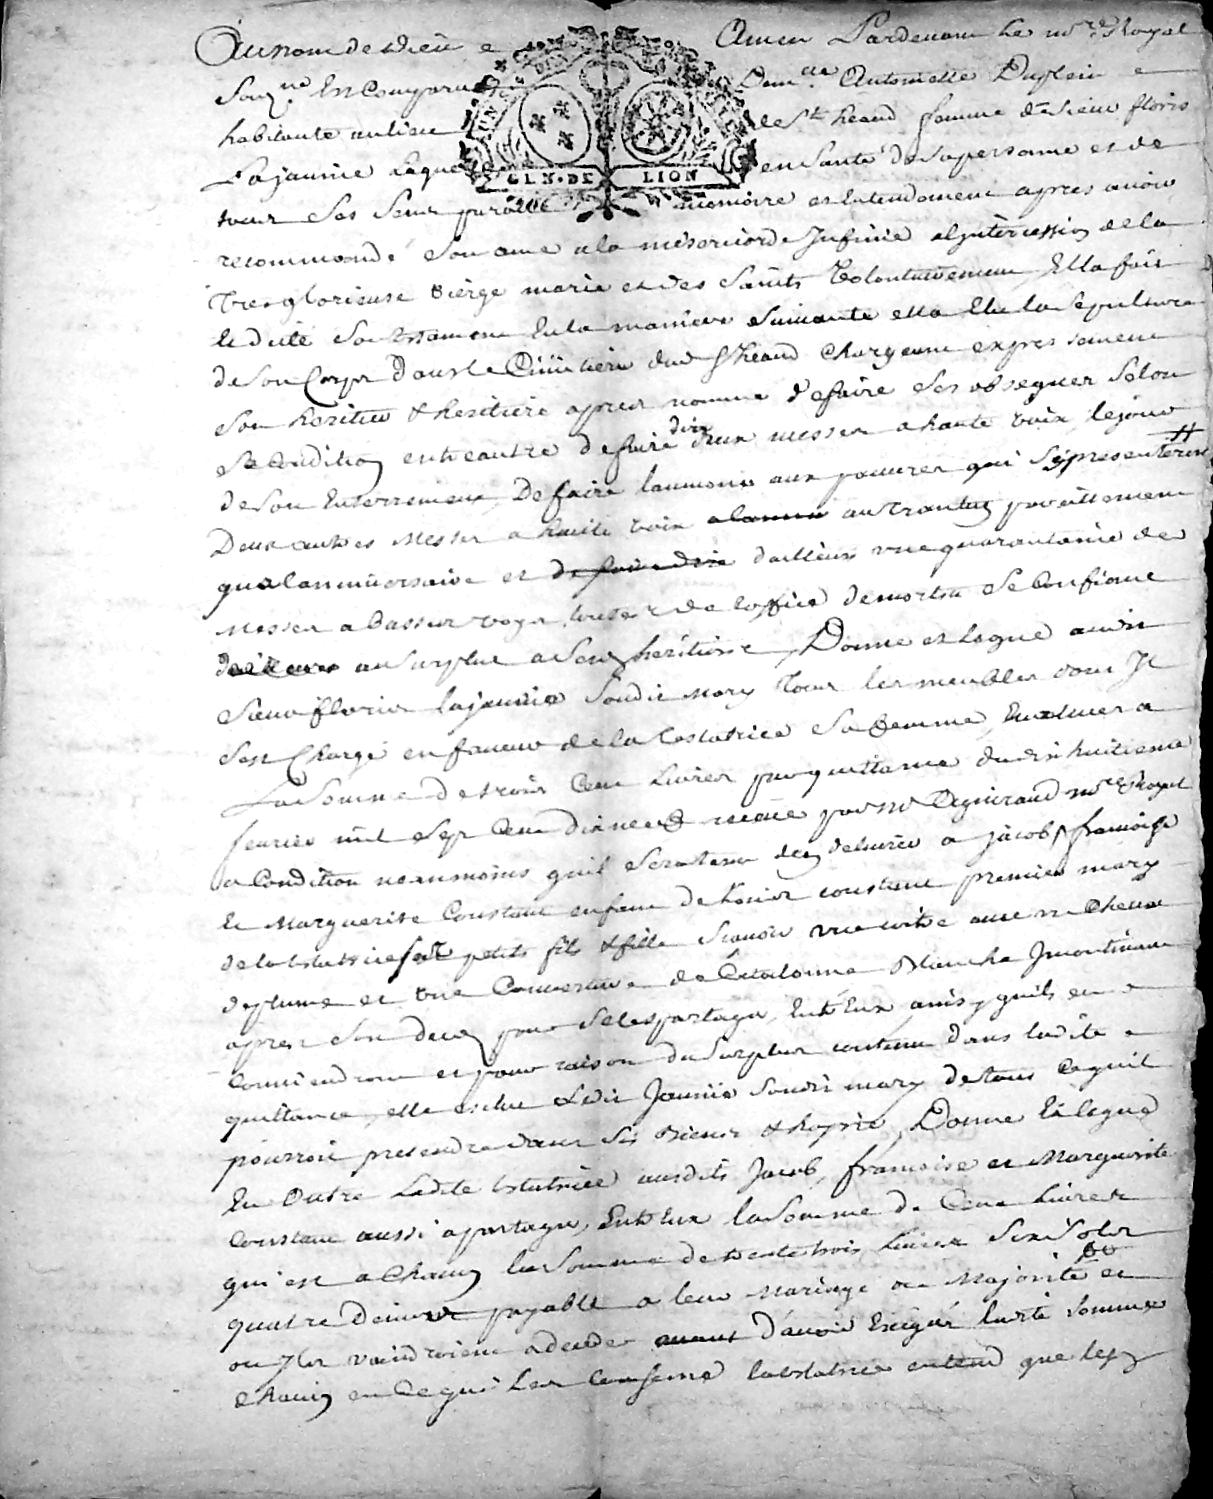 Au nom de Dieu Amen Pardevant le no.re Royal
Soug.né En Comparu Dem.lle Antoinette Duplein
habitante au lieu de S.t heand femme de Sieur floris
Lajaunie Laquelle en Santé de Sa personne et de
GEN. DE LION
tous Ses Sens parolle memoire et Entendement apres avoir
recommandé Son ame a la misericorde Infinie a l'Intercession de la
Tres glorieuse vierge marie et des Saints volontairement Ella fait
et dicté Son testament En la maniere Suivante ella Elu la Sepulture
de Son Corps dans le Cimetiere dud S.t heand Chargeant expressement
Son heritier & heritiere apres nommé de faire Ses obseques Selon
Sa Condition entre autre de faire dire deux messes a haute voix le jour
de Son Enterrement, De faire laumone aux pauvres qui Sy presenteront
Deux autres Messes a haute voix au trantin pareillement
qua lanniversaire et de faire dire d'ailleurs une quarantaine de
Messes a Basse voix de loffice de morts Se Confiant
au Surplus a Son heritiere, Donne et Legue audit
Sieur floris lajaunie Sondit Mary Tous les meubles dont Il
Sest Chargé en faveur de la Testatrice Sa femme, Evaluer a
La Somme de trois Cent Livres par quittance du dix huitieme
fevrier mil Sept Cent dix neuf recue par M.e no.re Royal
a Condition neanmoins quil Sera tenu den delivrer a jacob, francoise
et Marguerite Constant enfans de Constant premier mary
de la testatrice Ses petits fils & fille Scavoir une avec un Chevet
de plume et une Couverture de Catalonne Blanche Incontinant
apres Son deces pour Se les partager, Entre Eux ainsy quils en
Conviendront et pour raison du Surplus contenu dans ladite
quittance, elle exclut Ledit Jaunie Sondit mary de tous Ce quil
pourroit pretendre dans Ses Biens & hoyrie, Donne Et legue
En Outre Ladite testatrice ausdits Jacob, francoise et Marguerite
Constant aussi a partager, Entre Eux la Somme de Cent Livres
qui est a Chacun la Somme de trente trois Livres Six Sols
quatre deniers payable a leur Mariage ou Majorité et
ou Ils viendroient a deceder avant d'avoir Exigér ladite Somme
Chacun en Ce qui Les Conserne la testatrice entend que les